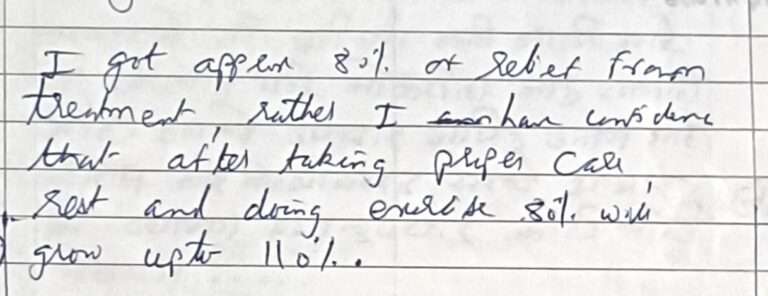 I got appen 80% of relief from
treatment, rather I have confidence
that after taking proper care,
rest and doing exercise 80% will
grow upto 110%.